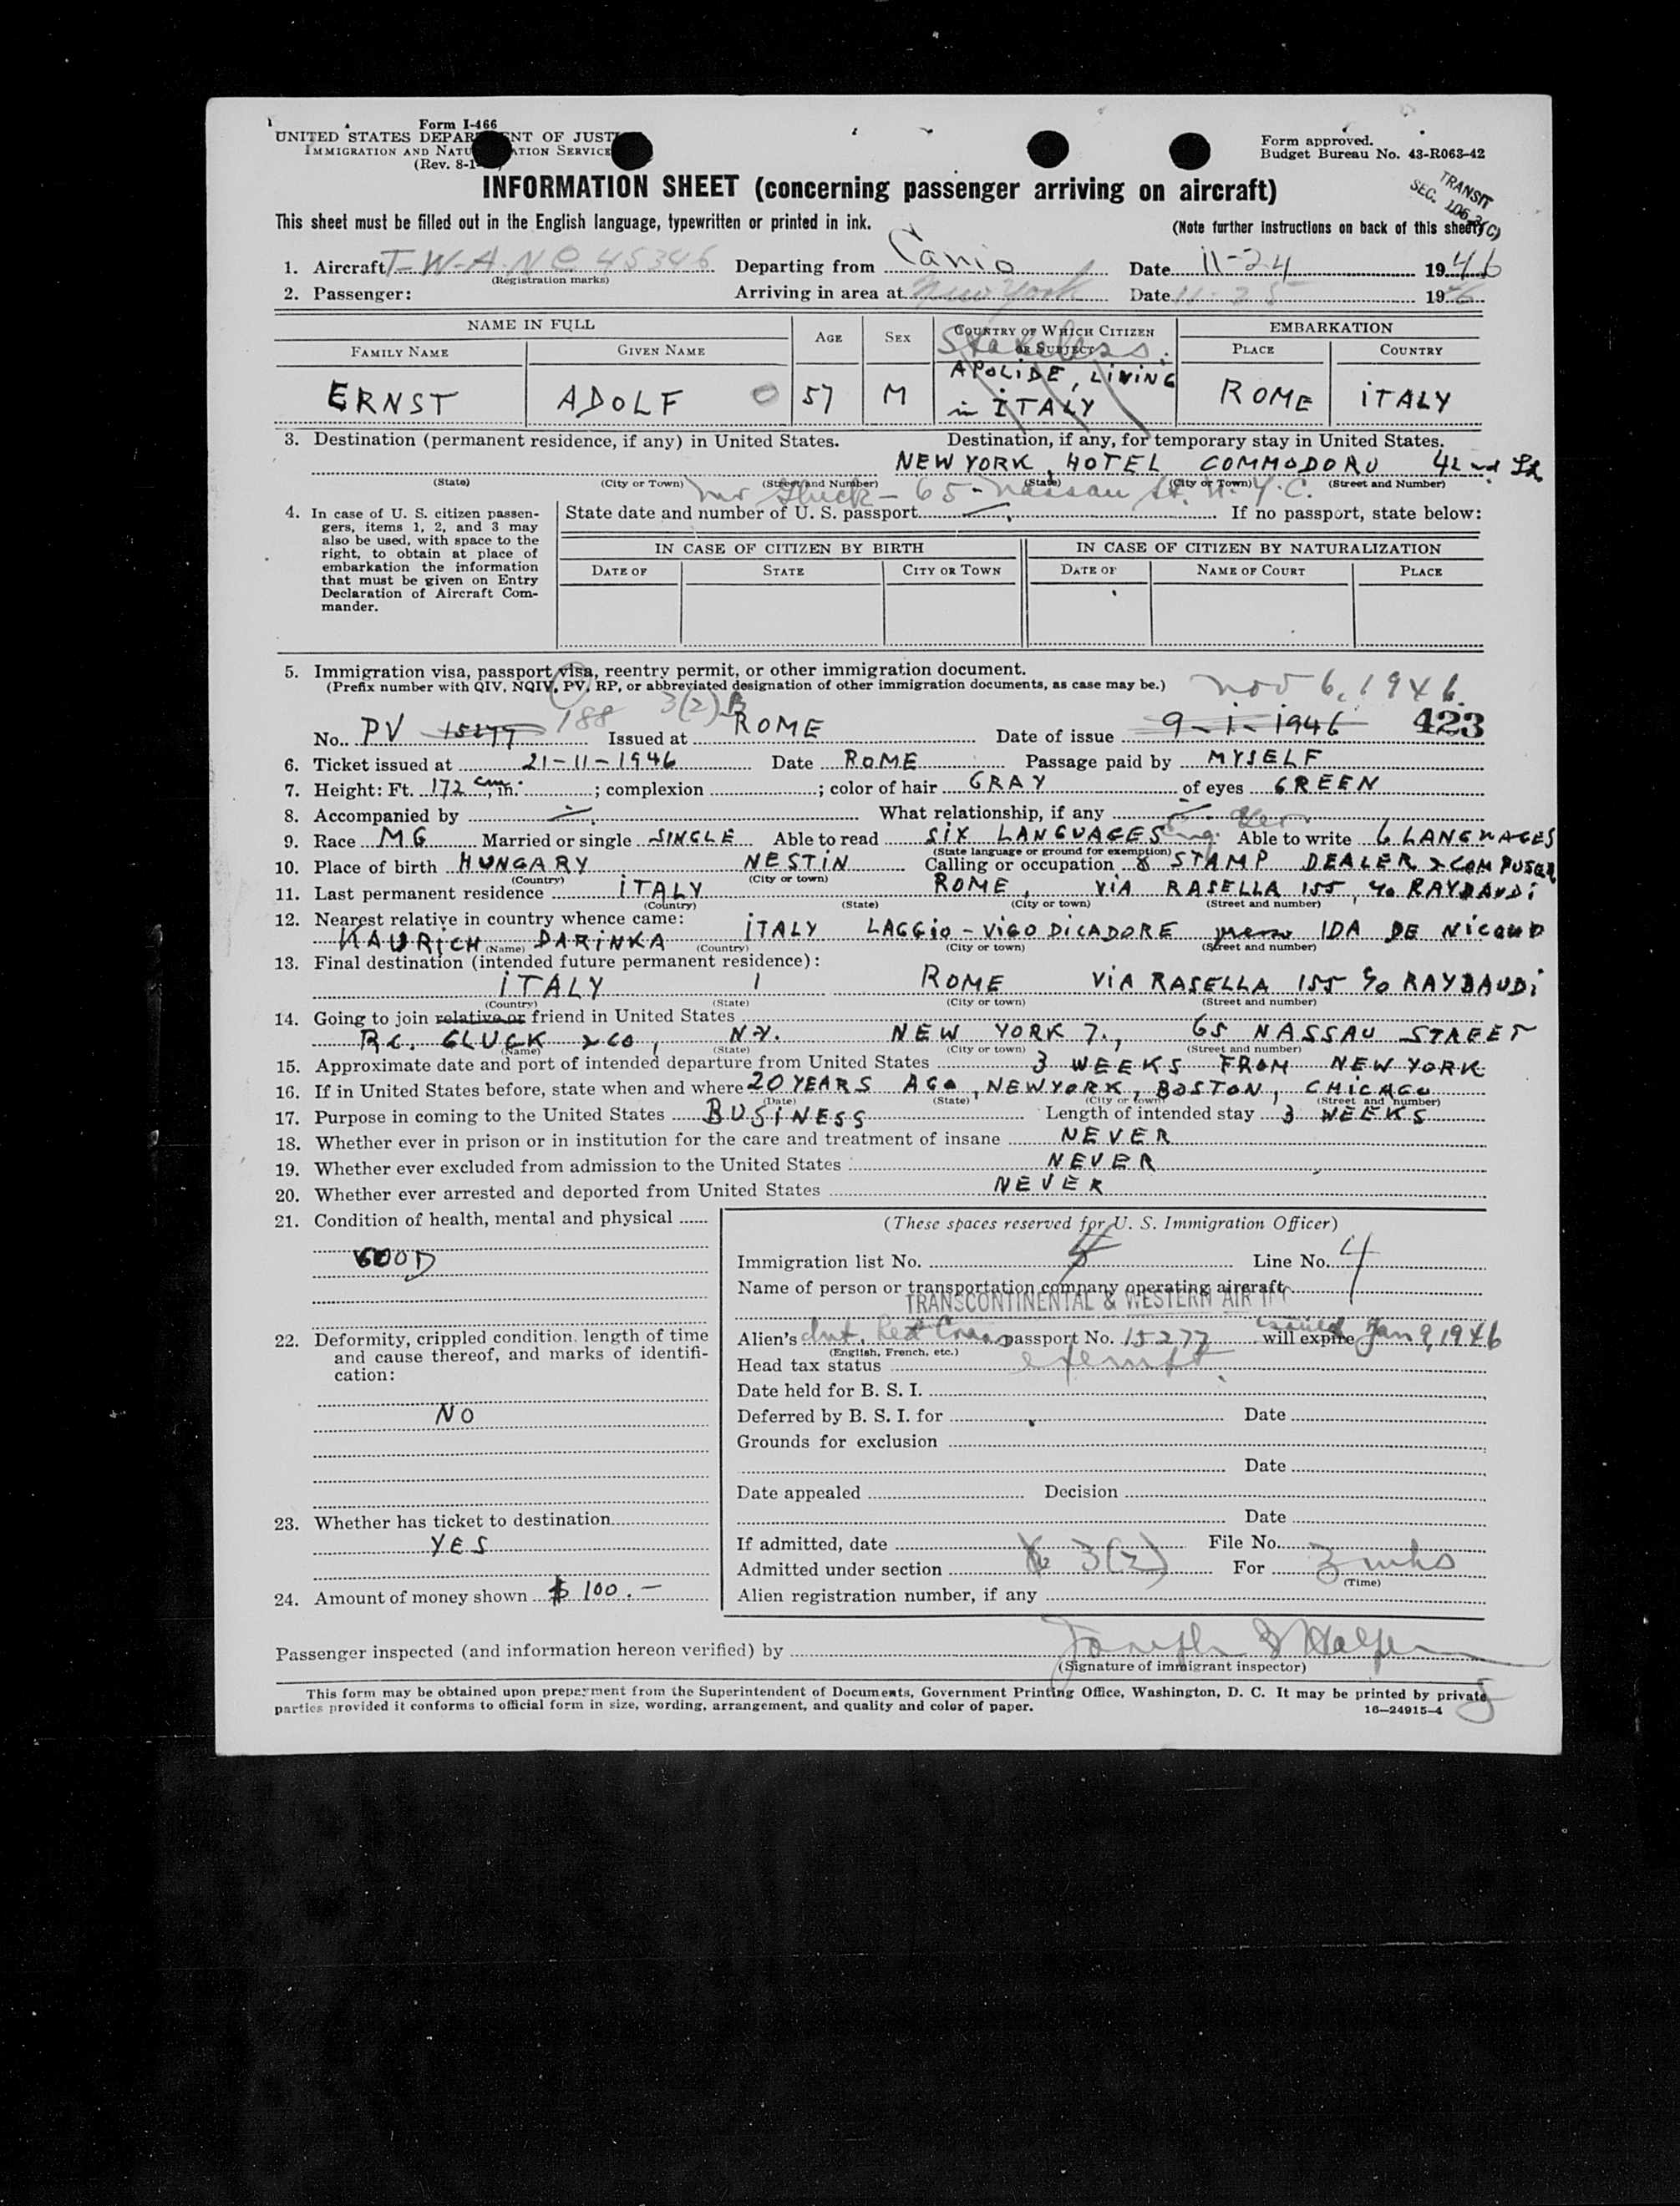 Form I-466
UNITED STATES DEPAR NT OF JUST
IMMIGRATION AND NATU ATION SERVICE
(Rev. 8-1
Form approved.
Budget Bureau No. 43-R063-42
INFORMATION SHEET (concerning passenger arriving on aircraft)
TRANSIT
SEC. 106.3(C)
This sheet must be filled out in the English language, typewritten or printed in ink.
(Note further instructions on back of this sheet)
1. Aircraft T-W-A NC 45346 Departing from Date 11-24 1946
(Registration marks)
2. Passenger: Arriving in area at New York Date 11-25 1946
NAME IN FULL AGE SEX COUNTRY OF WHICH CITIZEN OR SUBJECT EMBARKATION
FAMILY NAME GIVEN NAME PLACE COUNTRY
Stateless.
ERNST ADOLF 57 M APOLIDE, LIVING in ITALY ROME ITALY
3. Destination (permanent residence, if any) in United States. Destination, if any, for temporary stay in United States.
NEW YORK, HOTEL COMMODORU 42nd St
(State) (City or Town) (Street and Number) (State) (City or Town) (Street and Number)
Mr Gluck - 65 - Nassau St. N.Y.C.
4. In case of U. S. citizen passengers, items 1, 2, and 3 may also be used, with space to the right, to obtain at place of embarkation the information that must be given on Entry Declaration of Aircraft Commander.
State date and number of U. S. passport If no passport, state below:
IN CASE OF CITIZEN BY BIRTH IN CASE OF CITIZEN BY NATURALIZATION
DATE OF STATE CITY OR TOWN DATE OF NAME OF COURT PLACE
5. Immigration visa, passport visa, reentry permit, or other immigration document.
(Prefix number with QIV, NQIV, PV, RP, or abbreviated designation of other immigration documents, as case may be.)
Nov 6, 1946
188 3(2) B
No. PV 15277 Issued at ROME Date of issue 9-1-1946 423
6. Ticket issued at 21-11-1946 Date ROME Passage paid by MYSELF
7. Height: Ft. 172 cm, in. ; complexion ; color of hair GRAY of eyes GREEN
8. Accompanied by What relationship, if any
9. Race MG Married or single SINGLE Able to read SIX LANGUAGES Eng. Ger. Able to write 6 LANGUAGES
(State language or ground for exemption)
10. Place of birth HUNGARY NESTIN Calling or occupation STAMP DEALER & COMPOSER
(Country) (City or town)
11. Last permanent residence ITALY ROME, VIA RASELLA 155, c/o RAYBAUDI
(Country) (State) (City or town) (Street and number)
12. Nearest relative in country whence came:
KAURICH DARINKA ITALY LAGGIO-VIGO DICADORE IDA DE NICOUD
(Name) (Country) (City or town) (Street and number)
13. Final destination (intended future permanent residence):
ITALY ROME VIA RASELLA 155 c/o RAYBAUDI
(Country) (State) (City or town) (Street and number)
14. Going to join relative or friend in United States
R.C. GLUCK & CO, N.Y. NEW YORK 7., 65 NASSAU STREET
(Name) (State) (City or town) (Street and number)
15. Approximate date and port of intended departure from United States 3 WEEKS FROM NEW YORK
16. If in United States before, state when and where 20 YEARS AGO, NEW YORK, BOSTON, CHICAGO
(Date) (State) (City or town) (Street and number)
17. Purpose in coming to the United States BUSINESS Length of intended stay 3 WEEKS
18. Whether ever in prison or in institution for the care and treatment of insane NEVER
19. Whether ever excluded from admission to the United States NEVER
20. Whether ever arrested and deported from United States NEVER
21. Condition of health, mental and physical
GOOD
22. Deformity, crippled condition, length of time and cause thereof, and marks of identification:
NO
23. Whether has ticket to destination
YES
24. Amount of money shown $ 100.-
(These spaces reserved for U. S. Immigration Officer)
Immigration list No. Line No. 4
Name of person or transportation company operating aircraft
TRANSCONTINENTAL & WESTERN AIR INC
Alien's Int. Red Cross passport No. 15277 issued will expire Jan 9, 1946
(English, French, etc.)
Head tax status exempt
Date held for B. S. I.
Deferred by B. S. I. for Date
Grounds for exclusion
Date
Date appealed Decision
Date
If admitted, date File No.
Admitted under section 3(2) For 3 wks
(Time)
Alien registration number, if any
Passenger inspected (and information hereon verified) by
(Signature of immigrant inspector)
This form may be obtained upon prepayment from the Superintendent of Documents, Government Printing Office, Washington, D. C. It may be printed by private
parties provided it conforms to official form in size, wording, arrangement, and quality and color of paper.
16—24915-4